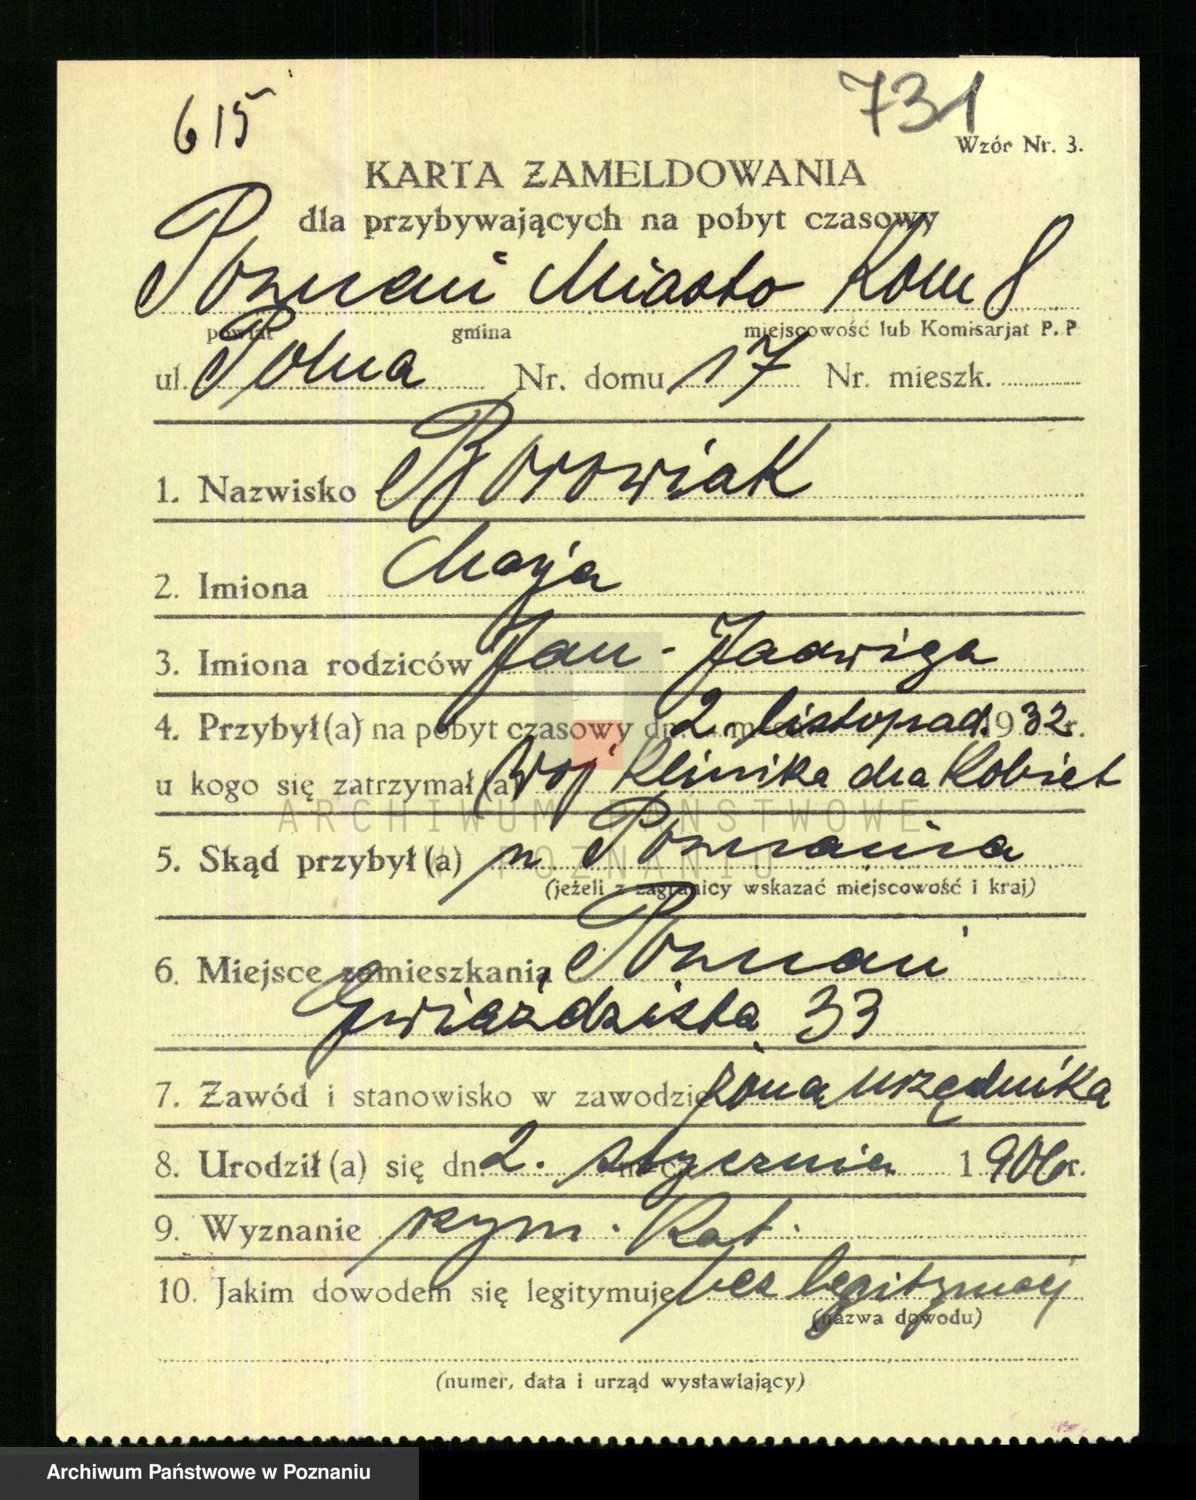 615
731
Wzór Nr. 3.
KARTA ZAMELDOWANIA
dla przybywających na pobyt czasowy
Poznań Miasto Kom 8
powiat gmina miejscowość lub Komisarjat P. P
ul. Polna Nr. domu 17 Nr. mieszk.
1. Nazwisko Borowiak
2. Imiona Marja
3. Imiona rodziców Jan - Jadwiga
4. Przybył(a) na pobyt czasowy dn. 2. listopad. 1932 r.
u kogo się zatrzymał(a) Woj Klinika dla Kobiet
ARCHIWUM PAŃSTWOWE
5. Skąd przybył(a) z Poznania
W POZNANIU
(jeżeli z zagranicy wskazać miejscowość i kraj)
6. Miejsce zamieszkania Poznań
Gwiaździsta 33
7. Zawód i stanowisko w zawodzie żona urzędnika
8. Urodził(a) się dn. 2. stycznia 1906 r.
9. Wyznanie rzym. Kat.
10. Jakim dowodem się legitymuje bez legitymacij
(nazwa dowodu)
(numer, data i urząd wystawiający)
Archiwum Państwowe w Poznaniu